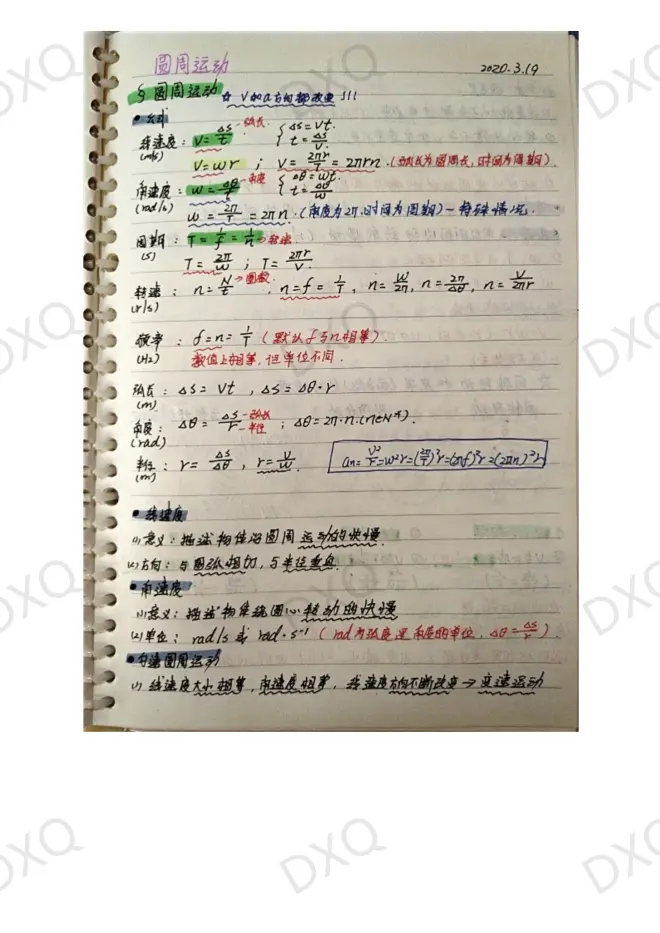 圆周运动
2020.3.19
§ 圆周运动 ☆ V和a方向都改变!!!
• 公式
线速度: V = Δs/t →弧长 { Δs = Vt. t = Δs/V
(m/s)
V = wr ; V = 2πr/T = 2πrn.(弧长为圆周长,时间为周期).
角速度: w = Δθ/t →角度 { Δθ = wt. t = Δθ/w
(rad/s)
w = 2π/T = 2πn.(角度为2π,时间为周期)-特殊情况.
周期: T = 1/f = 1/n →转速
(s)
T = 2π/w ; T = 2πr/V.
转速: n = N/t →圈数. n = f = 1/T, n = w/2π, n = 2π/Δθ, n = V/2πr
(r/s)
频率: f = n = 1/T (默认f与n相等)
(Hz) 数值上相等,但单位不同.
弧长: Δs = Vt , Δs = Δθ·r
(m)
角度: Δθ = Δs/r -弧长 -半径 ; Δθ = 2π·n.(n∈N*).
(rad)
半径: r = Δs/Δθ , r = V/w
(m)
an = V²/r = w²r = (2π/T)²r = (2πf)²r = (2πn)²r
• 线速度
(1)意义: 描述物体沿圆周运动的快慢
(2)方向: 与圆弧相切,与半径垂直.
• 角速度
(1)意义: 描述物体绕圆心转动的快慢
(2)单位: rad/s 或 rad·s⁻¹ (rad为弧度是角度的单位, Δθ = Δs/r).
• 匀速圆周运动
(1) 线速度大小相等,角速度相等, 线速度方向不断改变 → 变速运动
DXQ
DXQ
DXQ
DXQ
DXQ
DXQ
DXQ
DXQ
DXQ